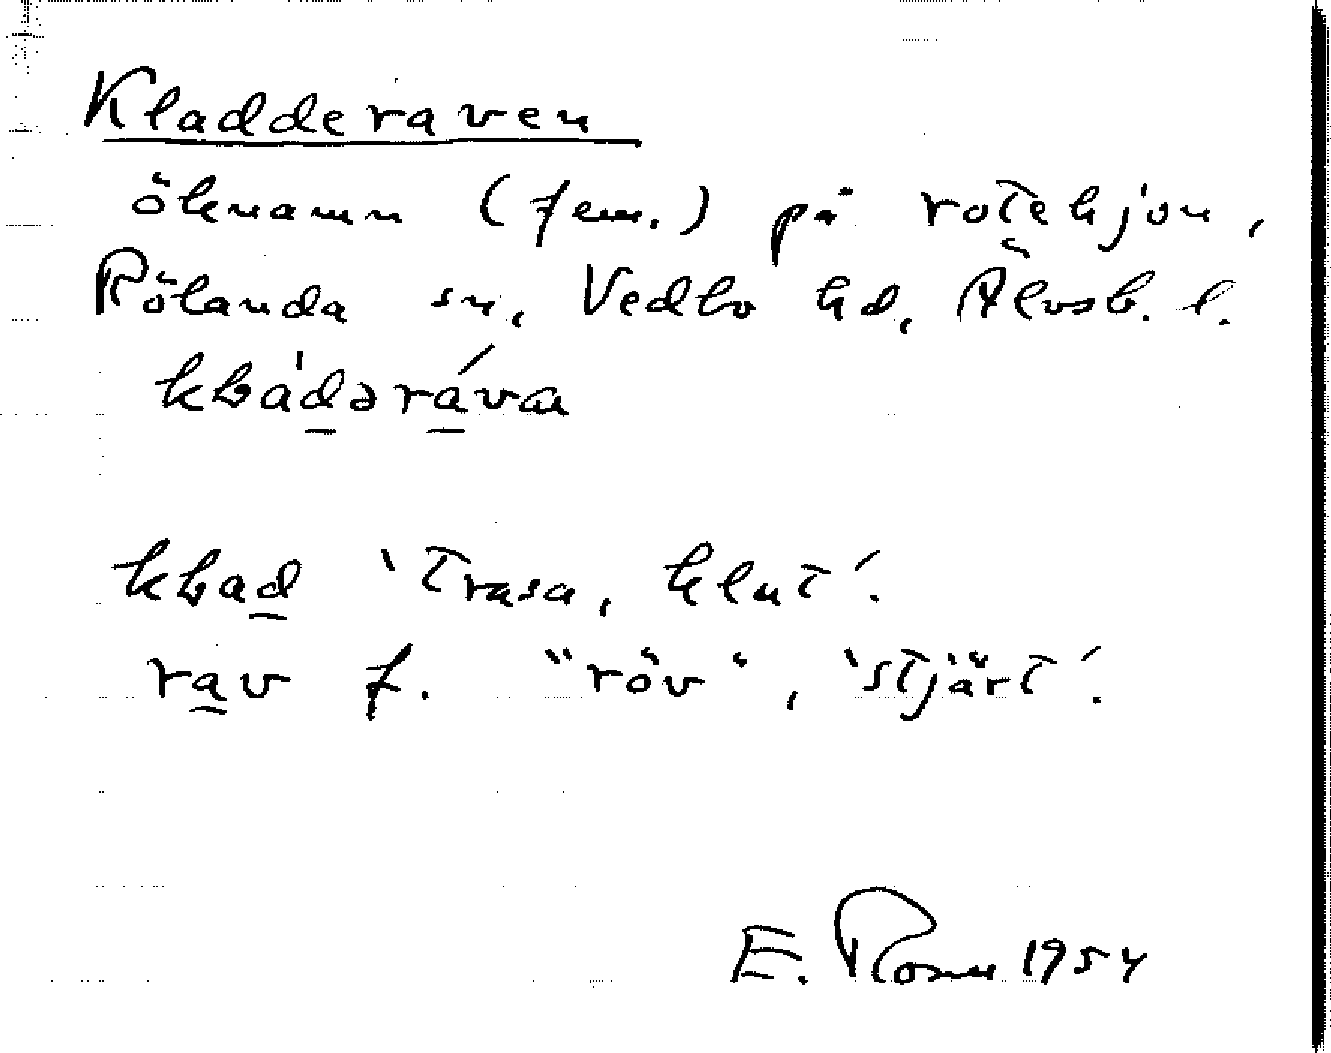 Kladderaven
öknamn (fem.) på rotehjon,
Rölanda sn, Vedbo hd, Älvsb. l.
kƚa'dəráva
kƚad 'trasa, klut'.
rav f. "röv", 'stjärt'.
E. 1954